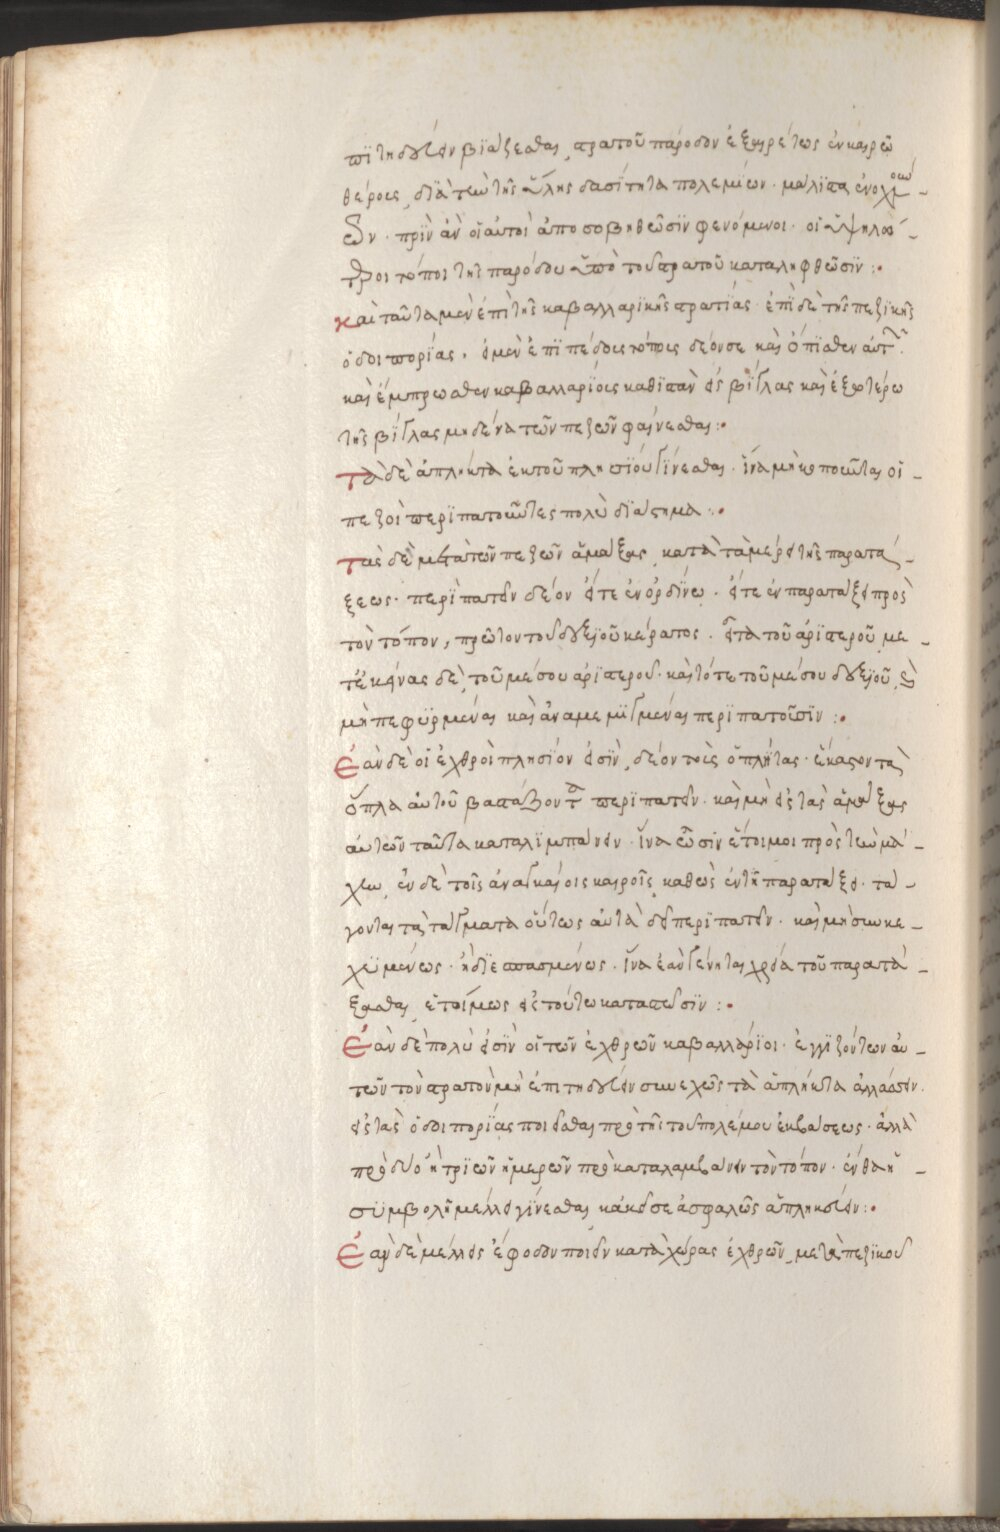 πϊτηδεύειν βϊάζεσθαι, στρατοῦ πάροδον ἐξαιρέτως ἐν καιρῶ
θέρους, διὰ τὴν τῆς ὕλης δασύτητα πολεμίων· μάλϊστα ἐνοχλούν-
των· πρϊν ἂν οἱ αὐτοὶ ἀποσοβηθῶσϊν φενόμενοι· οἱ ὑψηλό-
τεροι τόποι τῆς παρόδου ὑπὸ τοῦ στρατοῦ καταληφθῶσϊν :·
Καὶ ταῦτα μὲν ἐπὶ τῆς καβαλλαρϊκῆς στρατιᾶς· ἐπὶ δὲ τῆς πεζϊκῆς
ὁδοιπορίας· ἐν μὲν ἐπϊπέδοις τόποις δέον σε καὶ ὄπϊσθεν αὐτῆς
καὶ ἔμπρωσθεν καβαλλαρίοις καθϊστᾶν εἰς βϊγλας καὶ ἐξωτέρω
τῆς βϊγλας μηδένα τῶν πεζῶν φαίνεσθαι :·
Τὰ δὲ ἄπληκτα ἐκ τοῦ πλησϊου γϊνεσθαι· ἵνα μὴ κοποῶνται οἱ-
πεζοὶ περϊπατοῶντες πολὺ δϊάστημα :·
Τὰς δὲ μετὰ τῶν πεζῶν ἁμάξας, κατὰ τὰ μέρει τῆς παρατά-
ξεως· περϊπατεῖν δέον εἴτε ἐν ὀρδϊνω· εἴτε ἐν παρατάξει πρὸς
τὸν τόπον, πρῶτον τοῦ δεξϊοῦ κέρατος· εἶτα τοῦ ἀρϊστεροῦ με-
τ' ἐκείνας δὲ, τοῦ μέσου ἀρϊστεροῦ· καὶ τότε τοῦ μέσου δεξϊοῦ, καὶ
μὴ πεφυρμέναι καὶ ἀναμεμϊγμέναι περϊπατοῦσϊν :·
Ἐὰν δὲ οἱ ἐχθροὶ πλησϊον εἰσϊν, δέον τοὺς ὁπλϊτας· ἕκαστον τὰ
ὅπλα αὐτοῦ βαστάζοντα περϊπατεῖν· καὶ μὴ εἰς τὰς ἁμάξας
αὐτῶν ταῦτα καταλϊμπάνειν· ἵνα ὦσϊν ἕτοιμοι πρὸς τὴν μά-
χην, ἐν δὲ τοῖς ἀναγκαίοις καιροῖς, καθὼς ἐν τῆ παρατάξει· τά-
γονται τὰ τάγματα οὕτως αὐτὰ δεῖ περϊπατεῖν· καὶ μὴ συνκε-
χϋμένως· ἢ δϊεσπασμένως· ἵνα ἐὰν γένηται χρεία τοῦ παρατά-
ξασθαι, ἑτοίμως εἰς τοῦτο καταστῶσϊν :·
Ἐὰν δὲ πολὺ εἰσϊν οἱ τῶν ἐχθρῶν καβαλλάρϊοι· ἐγγϊζόντων αὐ-
τῶν τὸν στρατὸν μὴ ἐπιτηδεύειν συνεχῶς τὰ ἄπληκτα ἀλλάσσειν·
εἰς τὰς ὁδοιπορϊας ποιεῖσθαι πρὸ τῆς τοῦ πολέμου ἐκβάσεως· ἀλλὰ
πρὸ δύο ἢ τρϊῶν ἡμερῶν προκαταλαμβάνειν τὸν τόπον· ἔνθα ἡ-
συμβολὴ μέλλει γίνεσθαι, κἀκεῖσε ἀσφαλῶς ἀπληκεύειν :·
Ἐὰν δὲ μέλλεις ἔφοδον ποιεῖν κατὰ χώρας ἐχθρῶν, μετὰ πεζϊκοῦ